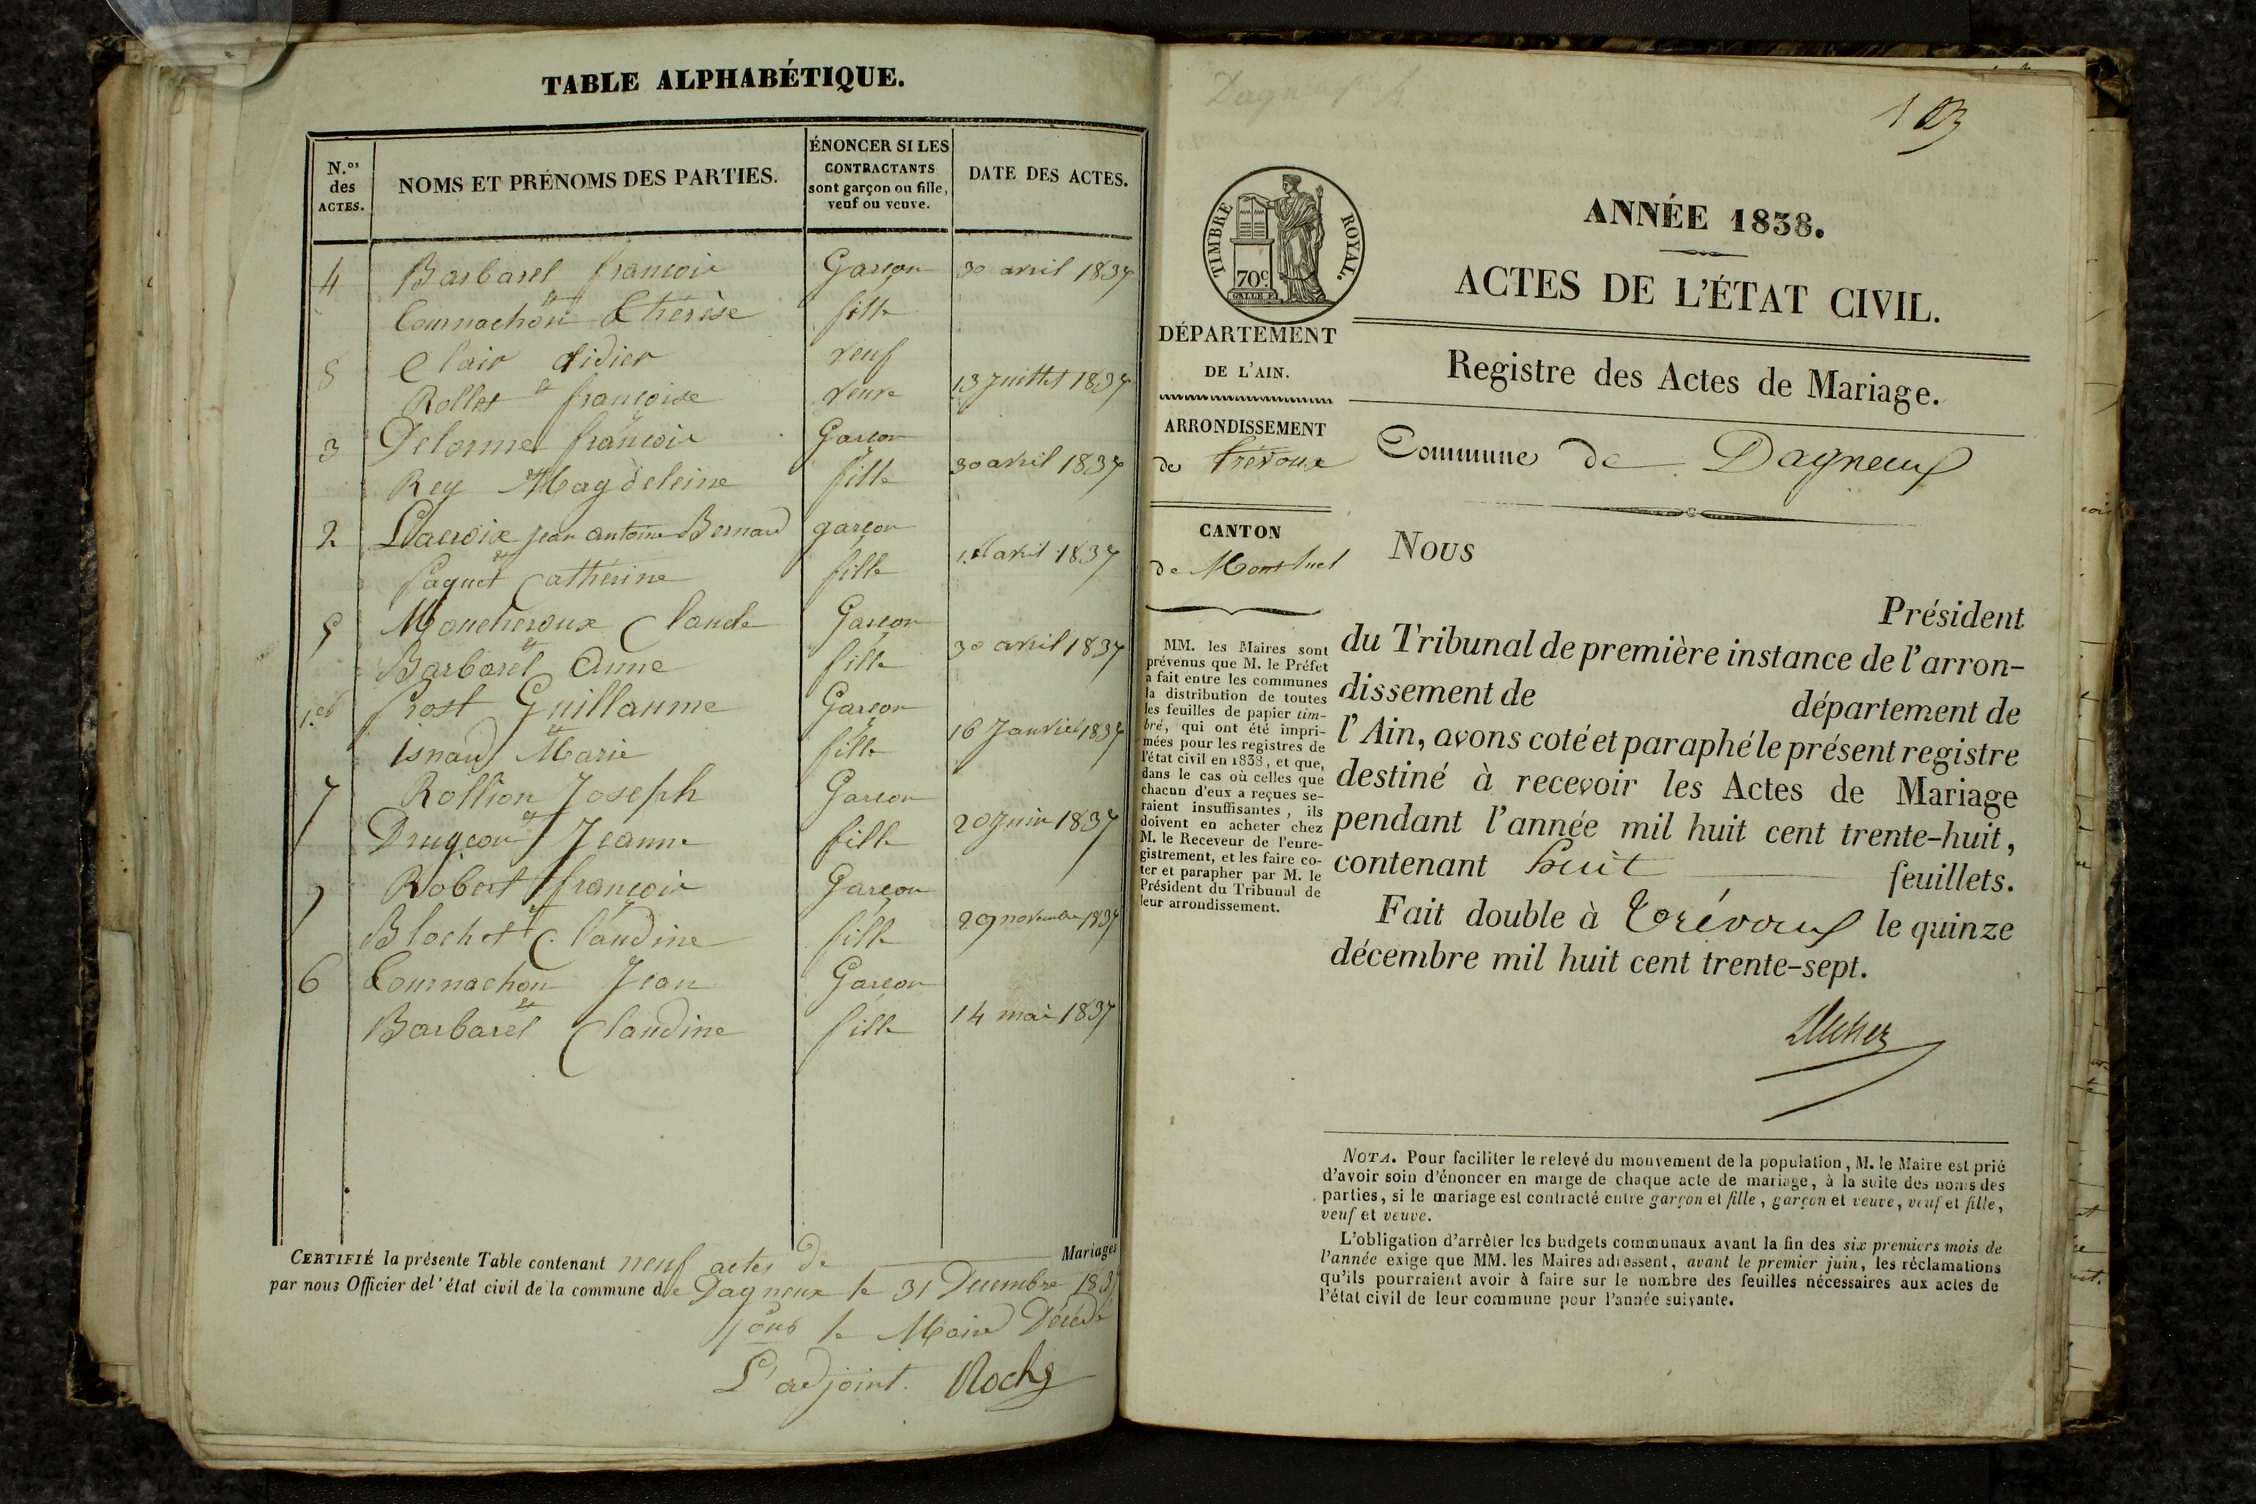 TABLE ALPHABÉTIQUE.
N.os des ACTES.
NOMS ET PRÉNOMS DES PARTIES.
ÉNONCER SI LES
CONTRACTANTS
sont garçon ou fille,
veuf ou veuve.
DATE DES ACTES.
4 Barbarel françois Garçon 30 avril 1837
et
Cournachon Thérèse fille
8 Clair didier veuf
et 13 Juillet 1837
Rollet françoise veuve
3 Delorme françois Garçon
30 avril 1837
Rey Magdeleine fille
2 Lacroix jean antoine Bernard garçon
et 1.er avril 1837
Paquet Catherine fille
5 Moucheroux Claude Garçon
et 30 avril 1837
Barbarel Anne fille
1.er Prost Guillaume Garçon
et 16 Janvier 1837
Isnard Marie fille
7 Rollion Joseph Garçon
et 20 Juin 1837
Drugeon Jeanne fille
9 Robert françois Garçon
et 29 novembre 1837
Blochet Claudine fille
6 Cournachon Jean Garçon
et 14 mai 1837
Barbarel Claudine fille
CERTIFIÉ la présente Table contenant neuf actes de Mariages
par nous Officier de l'état civil de la commune de Dagneux le 31 Decembre 1837
pour le Maire Décédé
L'adjoint. Roche
103
TIMBRE ROYAL.
70c
ANNÉE 1838.
ACTES DE L'ÉTAT CIVIL.
Registre des Actes de Mariage.
Commune de Dagneux
DÉPARTEMENT
DE L'AIN.
ARRONDISSEMENT
de Trévoux
CANTON
de Montluel
MM. les Maires sont
prévenus que M. le Préfet
a fait entre les communes
la distribution de toutes
les feuilles de papier tim-
bré, qui ont été impri-
mées pour les registres de
l'état civil en 1838, et que,
dans le cas où celles que
chacun d'eux a reçues se-
raient insuffisantes, ils
doivent en acheter chez
M. le Receveur de l'enre-
gistrement, et les faire co-
ter et parapher par M. le
Président du Tribunal de
leur arrondissement.
Nous
Président
du Tribunal de première instance de l'arron-
dissement de département de
l'Ain, avons coté et paraphé le présent registre
destiné à recevoir les Actes de Mariage
pendant l'année mil huit cent trente-huit,
contenant huit feuillets.
Fait double à Trévoux le quinze
décembre mil huit cent trente-sept.
NOTA. Pour faciliter le relevé du mouvement de la population, M. le Maire est prié
d'avoir soin d'énoncer en marge de chaque acte de mariage, à la suite des noms des
parties, si le mariage est contracté entre garçon et fille, garçon et veuve, veuf et fille,
veuf et veuve.
L'obligation d'arrêter les budgets communaux avant la fin des six premiers mois de
l'année exige que MM. les Maires adressent, avant le premier juin, les réclamations
qu'ils pourraient avoir à faire sur le nombre des feuilles nécessaires aux actes de
l'état civil de leur commune pour l'année suivante.